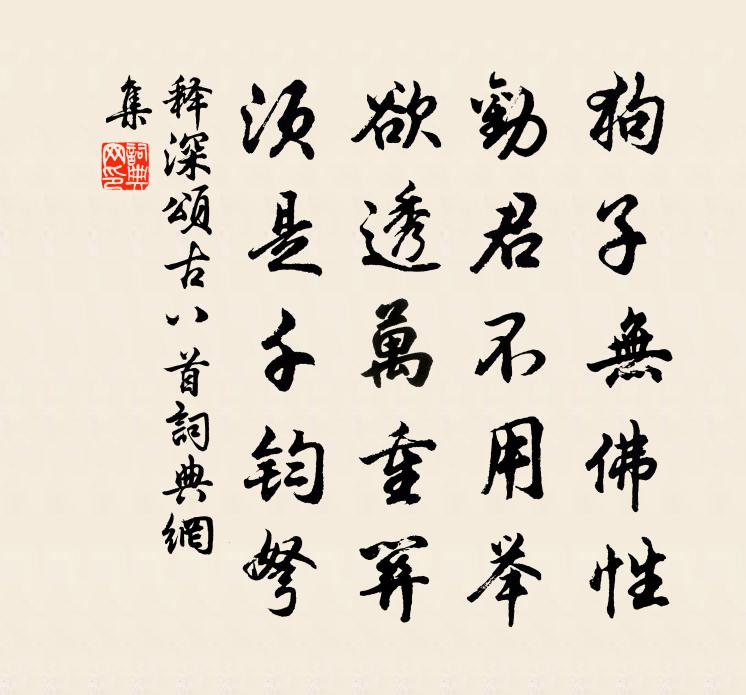 狗子無佛性
勸君不用举
欲透萬重関
須是千鈞弩
释深頌古八首詞典網
集
詞典網印